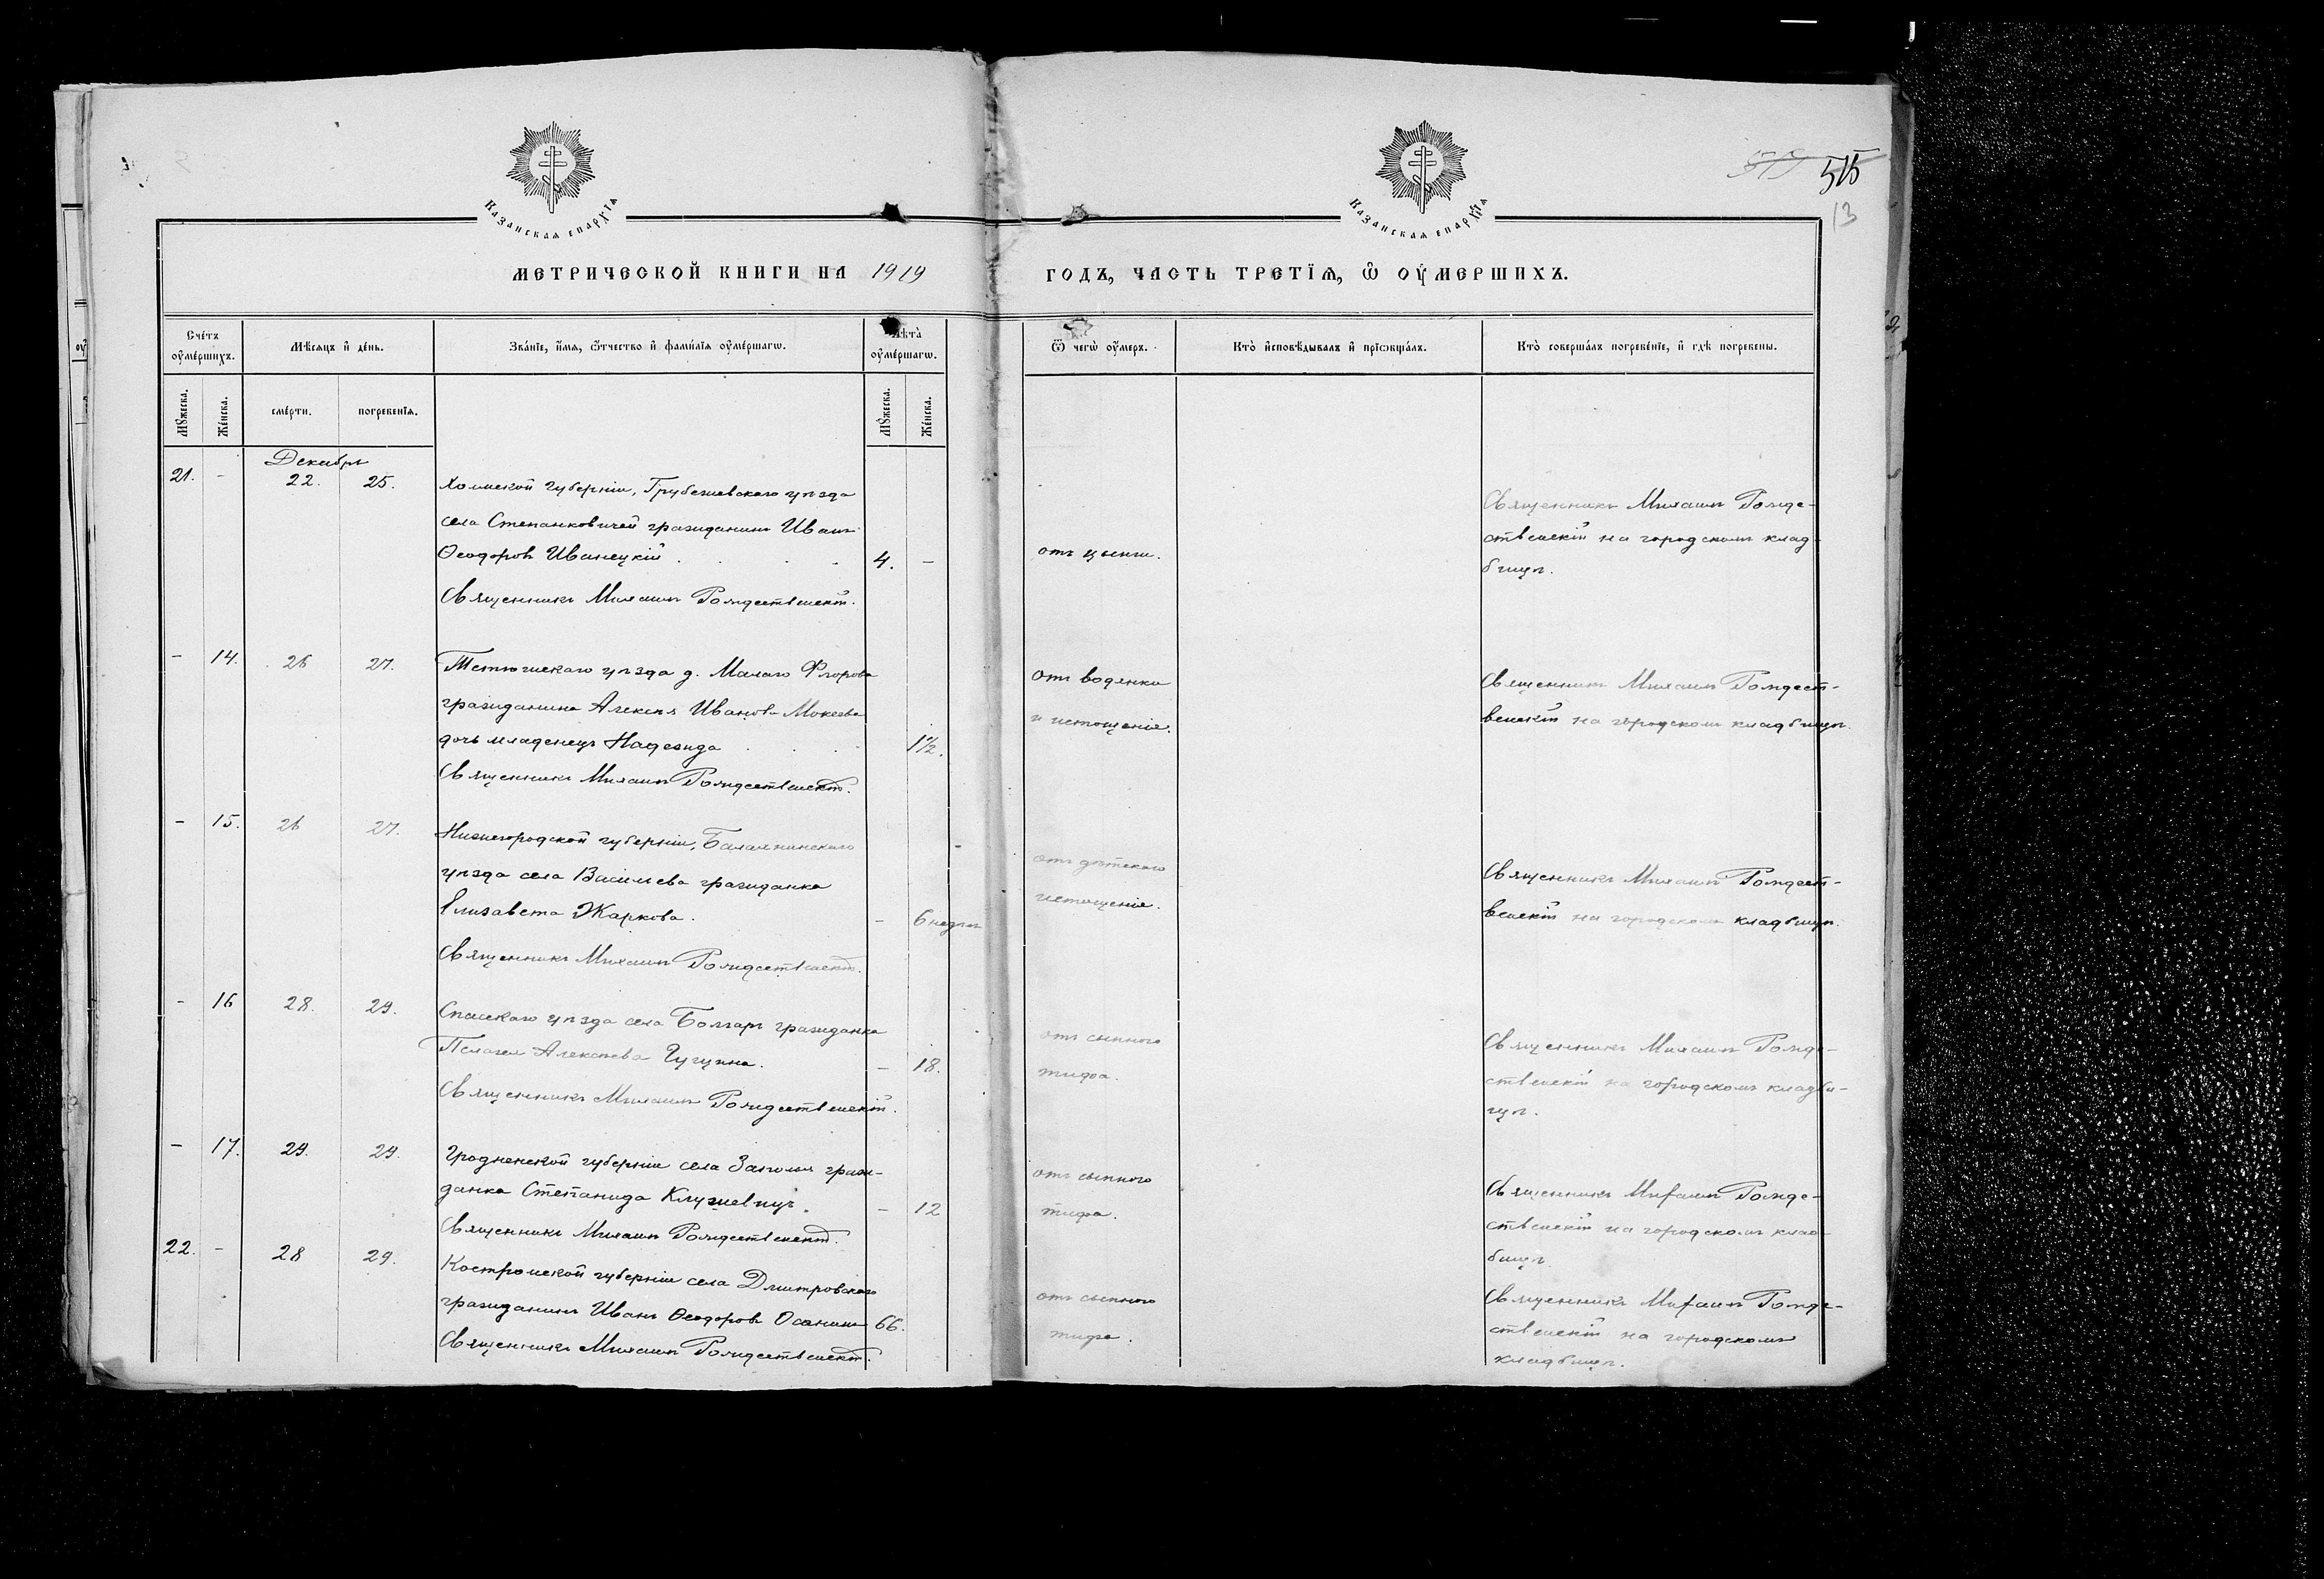 515
13
Казанская епархїя
Казанская епархїя
МЕТРИЧЕСКОЙ КНИГИ НА 1919
ГОДЪ, ЧАСТЬ ТРЕТЇЯ, Ѿ ОУМЕРШИХЪ.
Сче́тъ оу҆ме́ршихъ.
Мѣ́сяцъ и҆ де́нь.
Зва́нїе, и҆́мя, ѻ҆́тчество и҆ фами́лїя оу҆ме́ршагѡ.
Лѣта̀ оу҆ме́ршагѡ.
Ѿ чегѡ̀ оу҆́меръ.
Кто̀ и҆сповѣ́дывалъ и҆ прїѡбща́лъ.
Кто̀ соверша́лъ погребе́нїе, и҆ гдѣ̀ погребены.
Мꙋжеска.
Же́нска.
сме́рти.
погребе́нїя.
Мꙋжеска.
Же́нска.
Декабрь
21. - 22. 25.
Холмской губерніи, Грубешевскаго уѣзда
села Степанковичей гражданинъ Иванъ
Ѳеодоровъ Иванецкій . 4. -
Священникъ Михаилъ Рождественскій.
отъ цынги.
Священникъ Михаилъ Рожде-
ственскій на городскомъ клад-
бищѣ.
- 14. 26 27.
Тетюшскаго уѣзда д. Малаго Фролова
гражданина Алексѣя Иванова Мокеева
дочь младенецъ Надежда 1½.
Священникъ Михаилъ Рождественскій.
отъ водянки
и истощенія.
Священникъ Михаилъ Рождест-
венскій на городскомъ кладбищѣ.
- 15. 26 27.
Нижегородской губерніи, Балахнинскаго
уѣзда села Васильева гражданка
Елизавета Жаркова. - 6 недѣль
Священникъ Михаилъ Рождественскій.
отъ дѣтскаго
истощенія.
Священникъ Михаилъ Рождест-
венскій на городскомъ кладбищѣ.
- 16 28. 29.
Спасскаго уѣзда села Болгаръ гражданка
Пелагея Алексѣева - 18.
Священникъ Михаилъ Рождественскій.
отъ сыпного
тифа.
Священникъ Михаилъ Рожде-
ственскій на городскомъ кладби-
щѣ.
- 17. 29. 29.
Гродненской губерніи села граж-
данка Степанида - 12
Священникъ Михаилъ Рождественскій.
отъ сыпного
тифа.
Священникъ Михаилъ Рожде-
ственскій на городскомъ клад-
бищѣ
22. - 28 29.
Костромской губерніи села Дмитровскаго
гражданинъ Иванъ Ѳеодоровъ Осанинъ 66.
Священникъ Михаилъ Рождественскій.
отъ сыпного
тифа.
Священникъ Михаилъ Рожде-
ственскій на городскомъ
кладбищѣ.